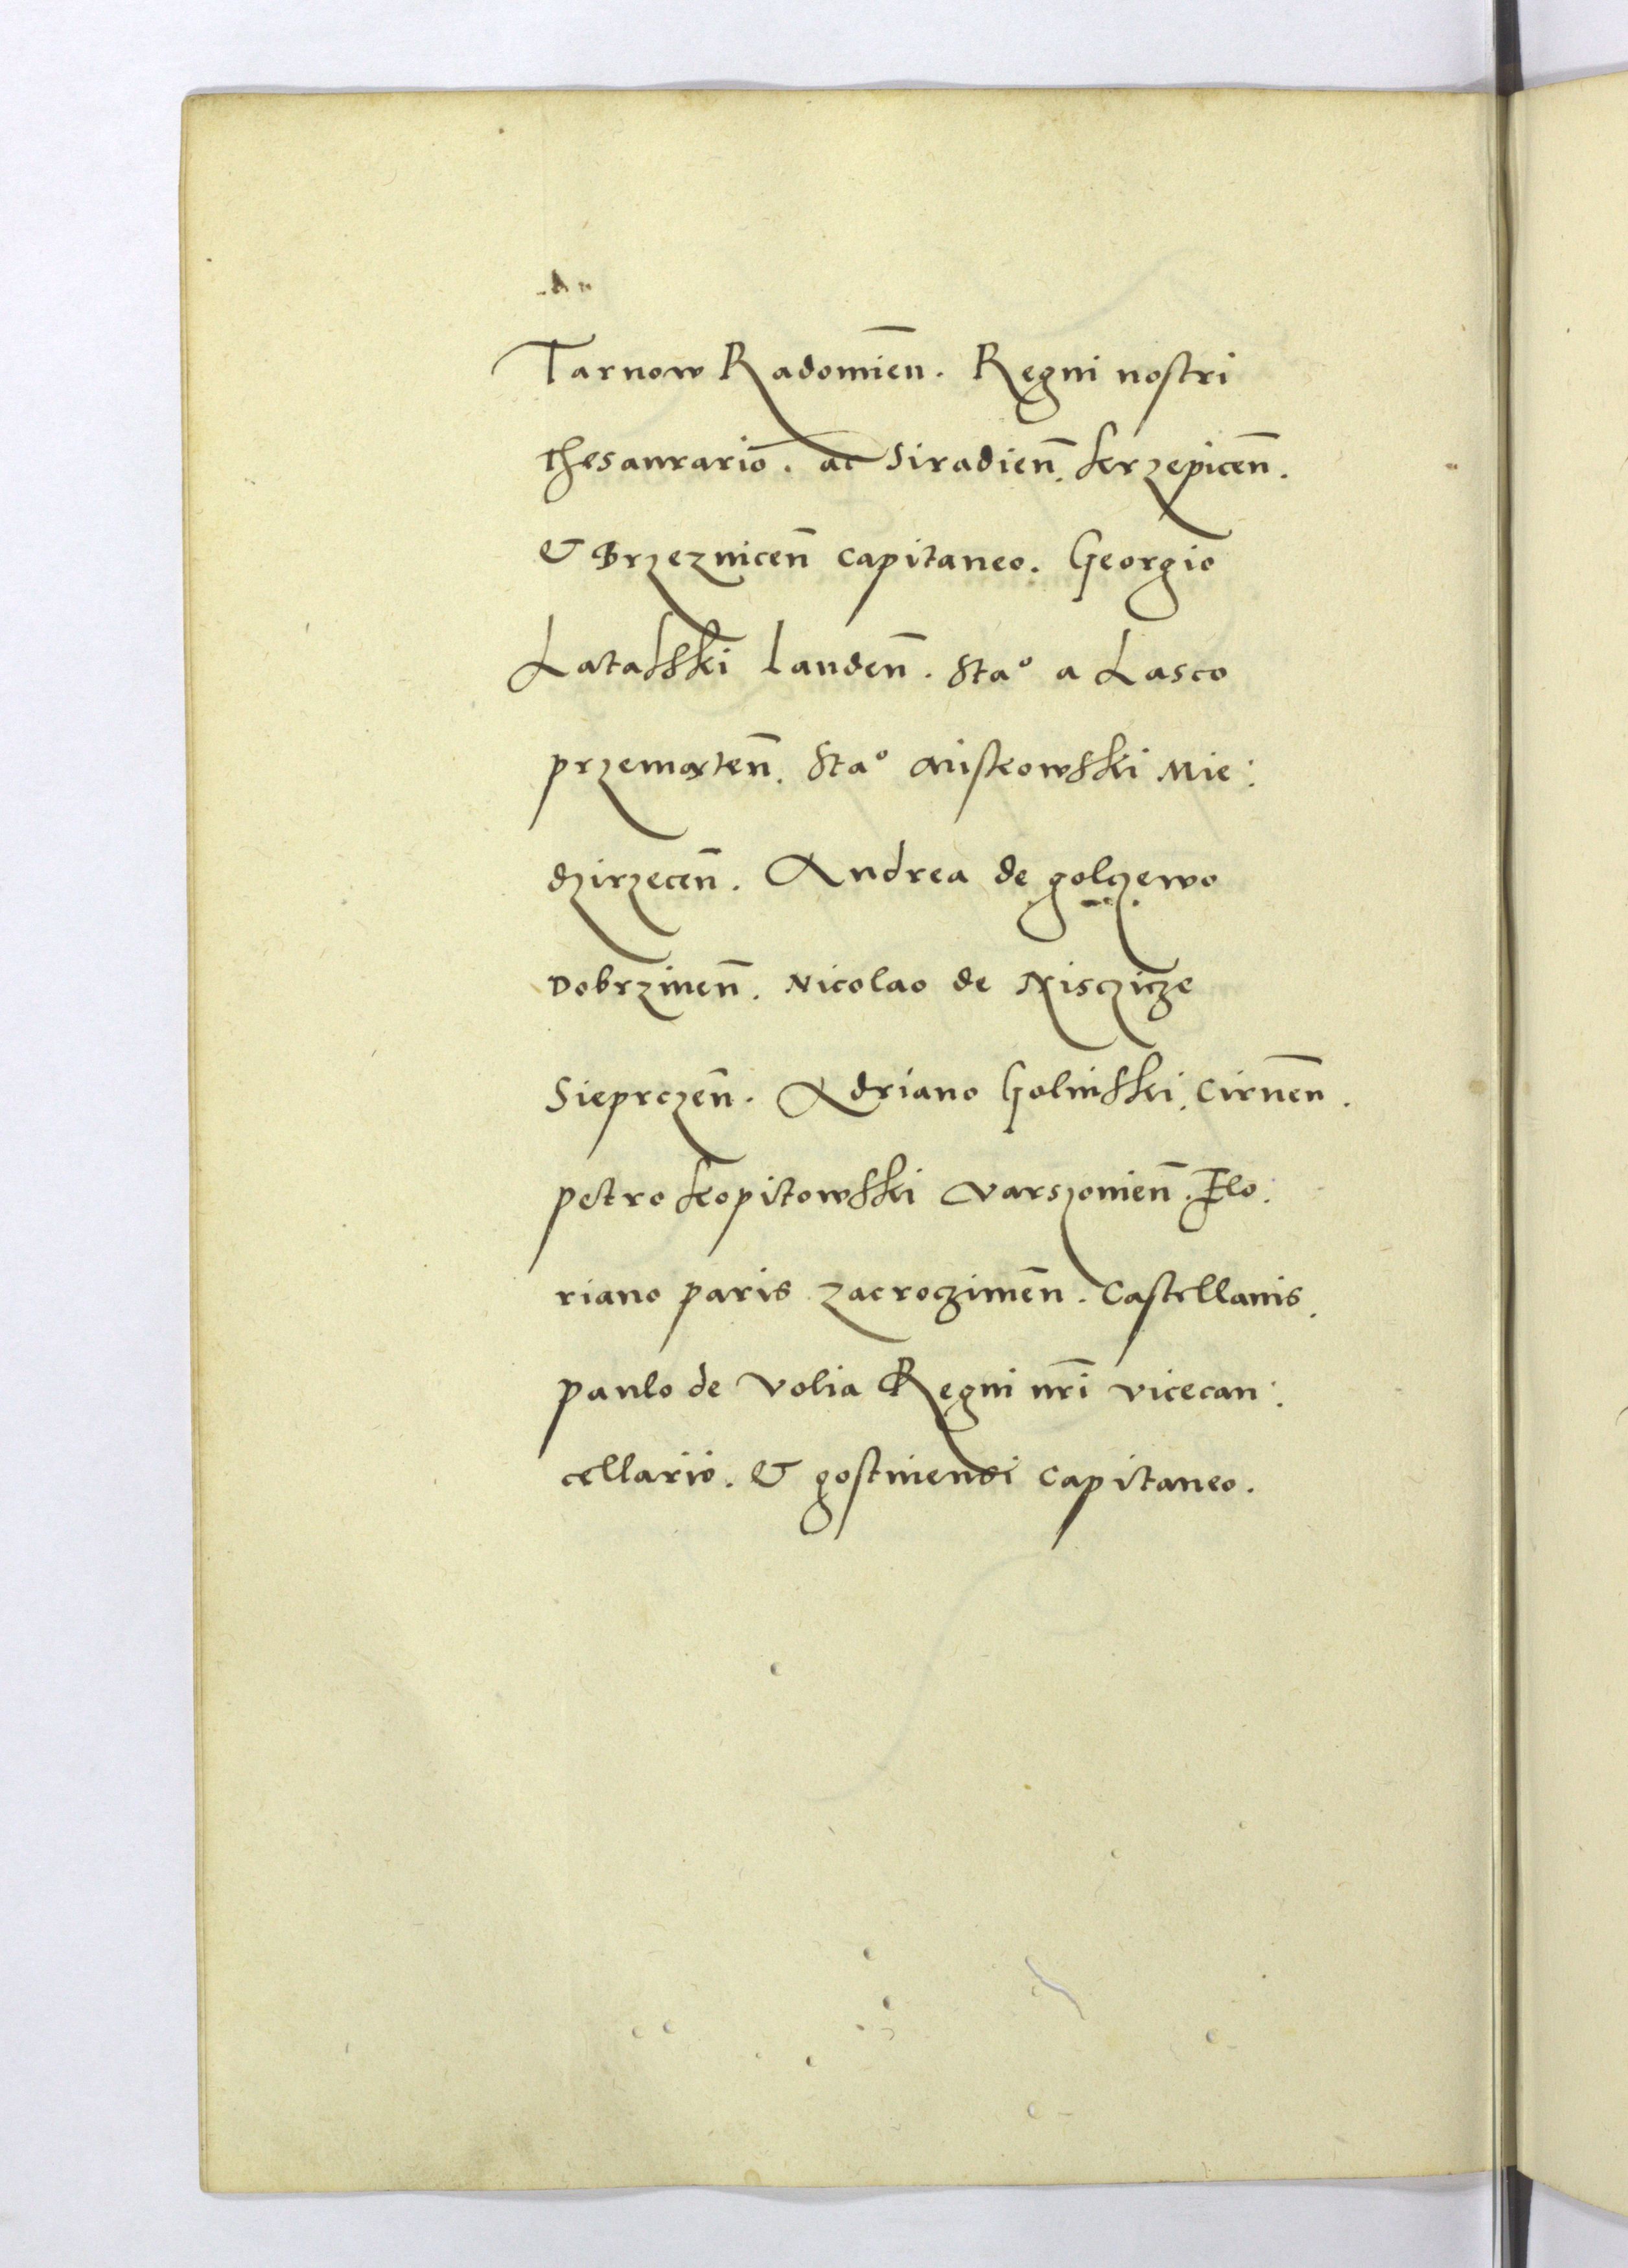 Tarnow Radomien̄. Regni nostri
thesaurario. ac Siradien̄. krzepicen̄.
& Brzeznicen̄ capitaneo. Georgio
Latalski landen̄. Sta° a Lasco
przemeten̄. Sta° Miskowski Mie:
dzirzecen̄. Andrea de golczewo
Dobrzinen̄. Nicolao de Nisczicze
Sieprczen̄. Adriano Golinski. Cirnen̄.
petro kopitowski varszonien̄. Flo:
riano paris zacroczimen̄. Castellanis.
paulo de volia Regni nr̄i vicecan:
cellario. & gostinensi capitaneo.